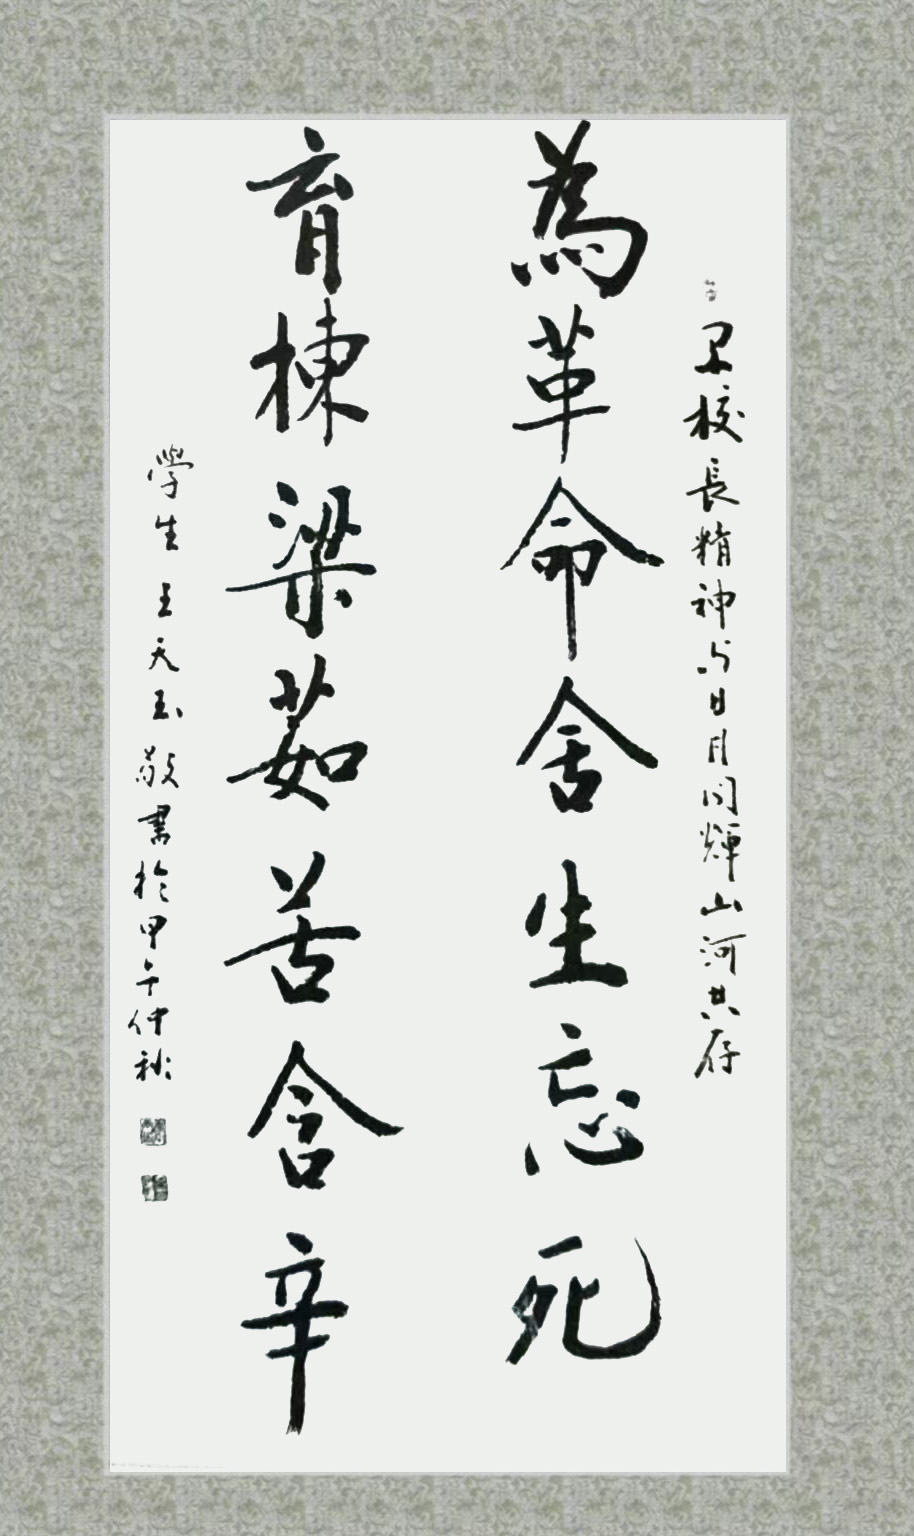 校長精神与日月同輝山河共存
為革命舍生忘死
育棟梁茹苦含辛
學生王天玉敬書於甲午仲秋